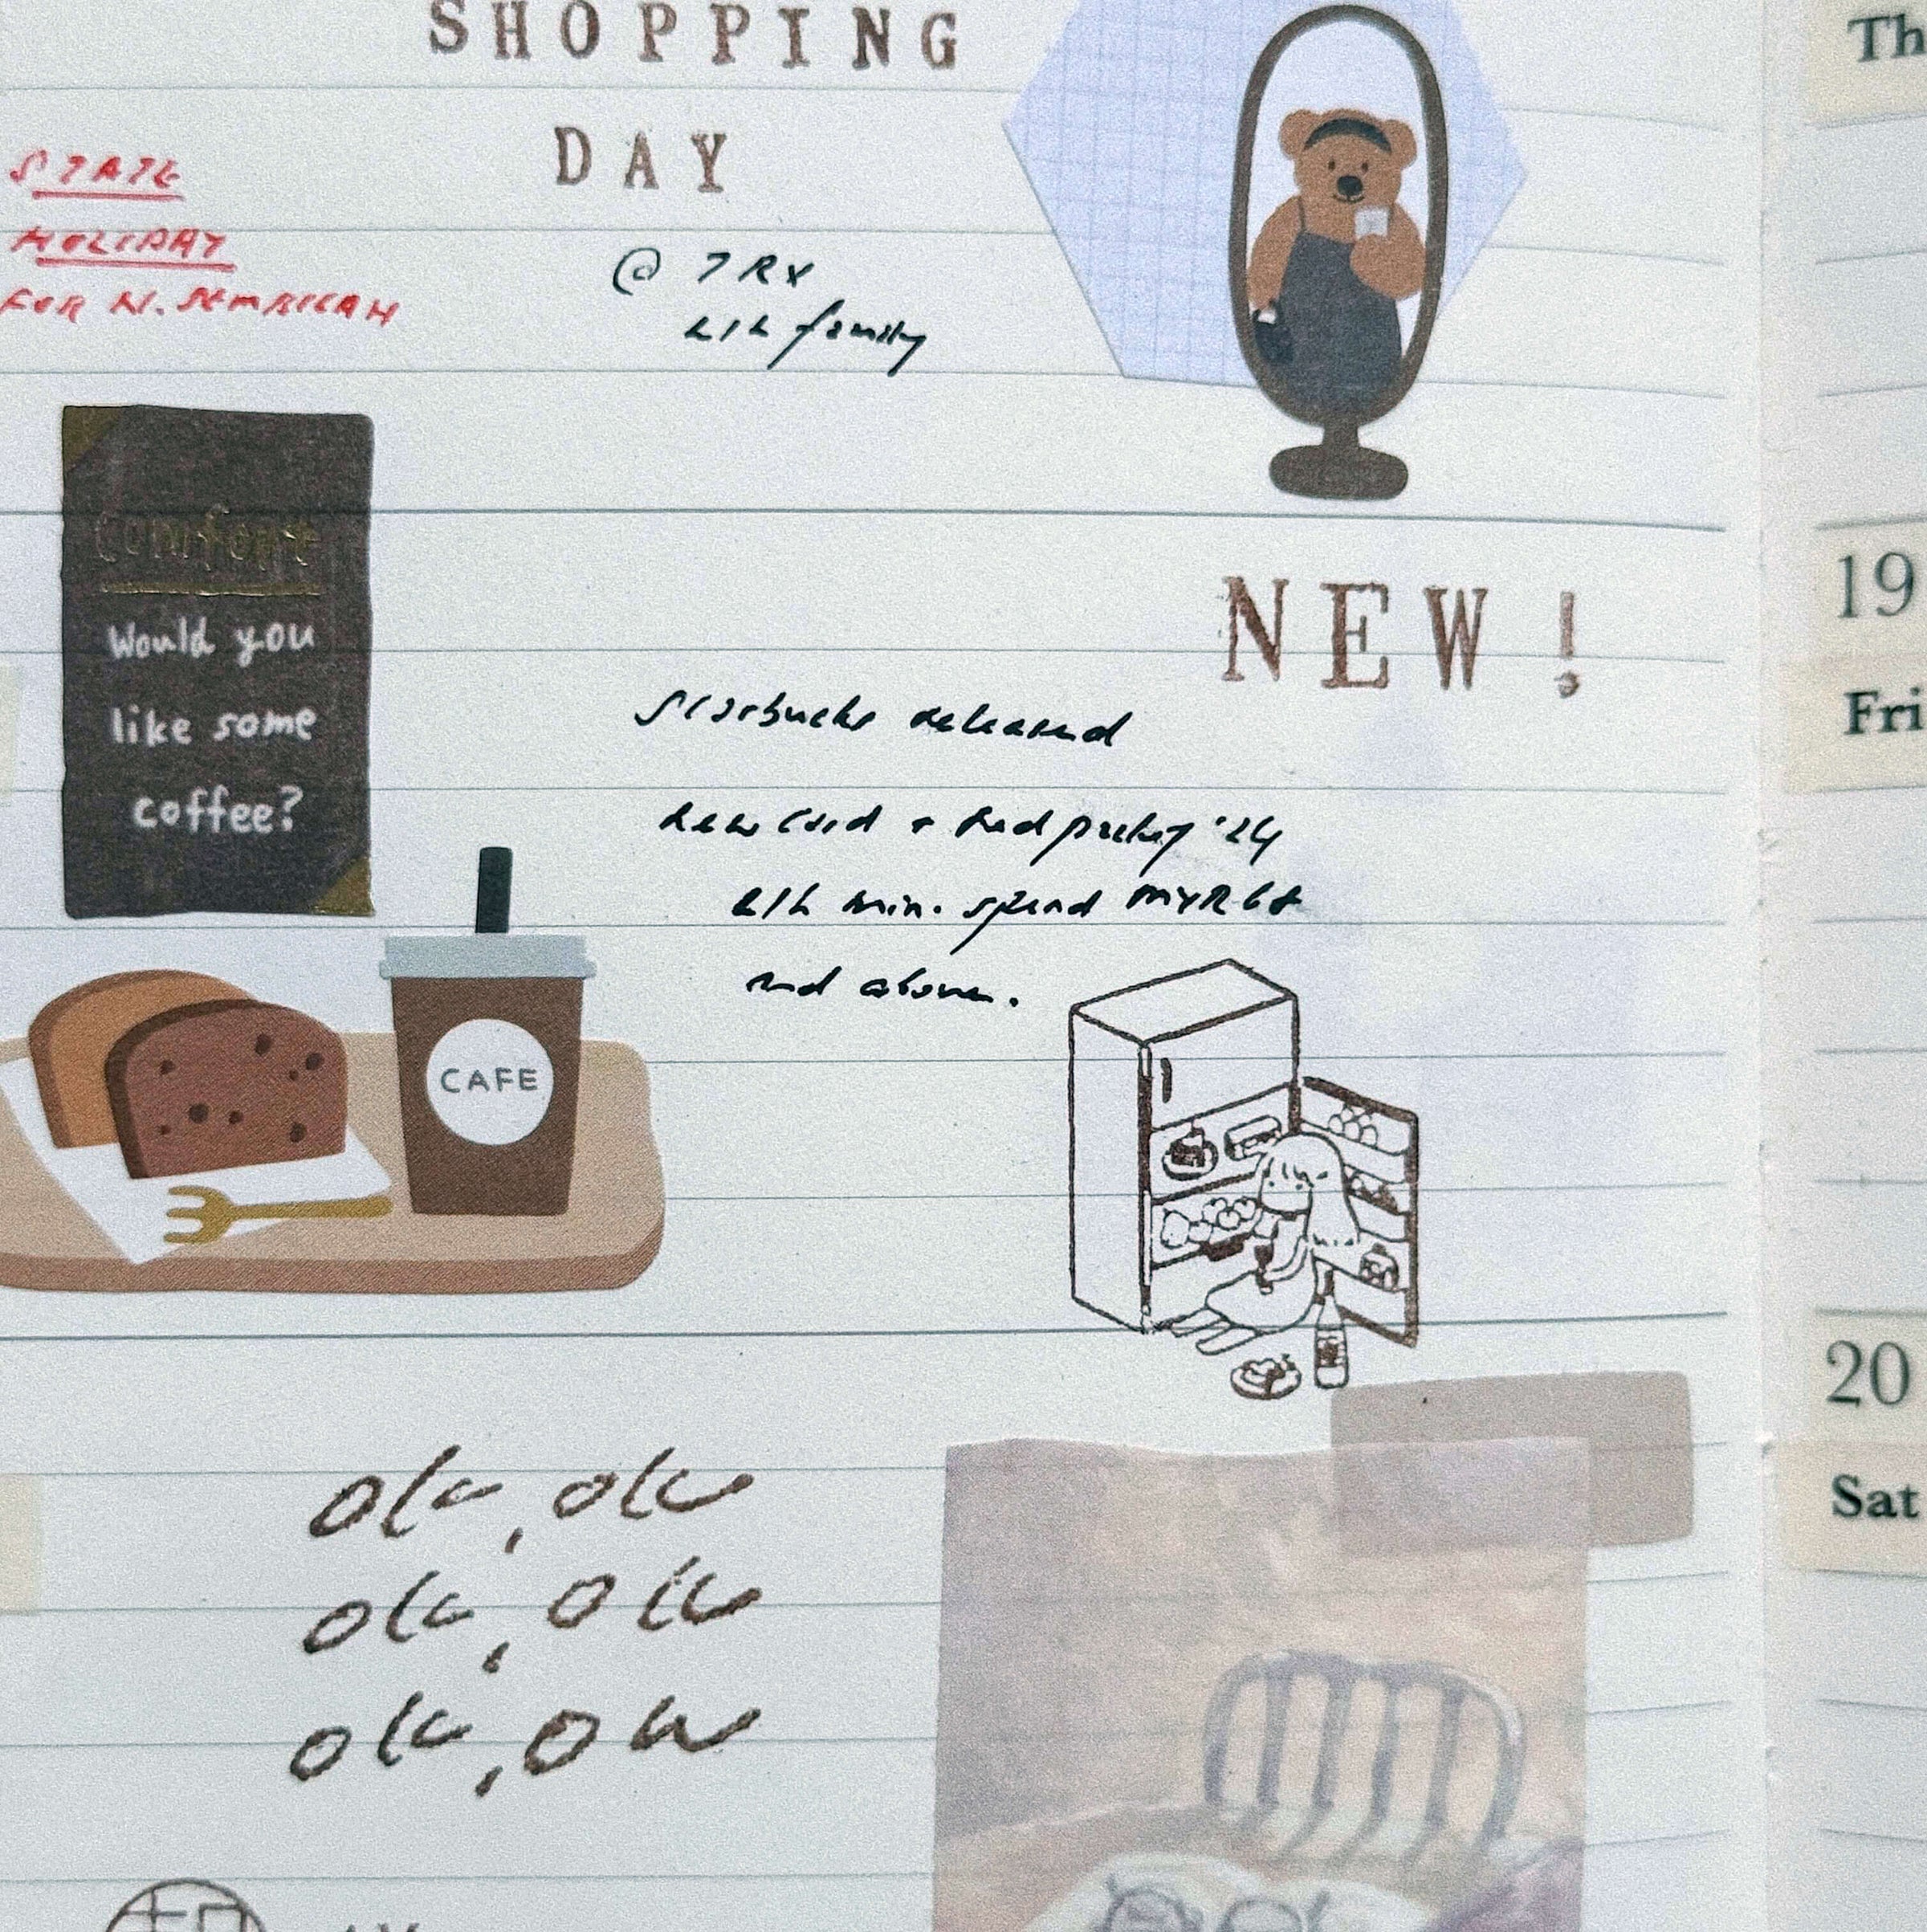 SHOPPING
DAY
STATE
HOLIDAY
FOR N. SEMBILAN
@ TRX
w/h family
Comfort
Would you
like some
coffee?
NEW!
Starbucks released
new card + Red packet '24
w/h min. spend MYR68
and above.
CAFE
Th
19
Fri
20
Sat